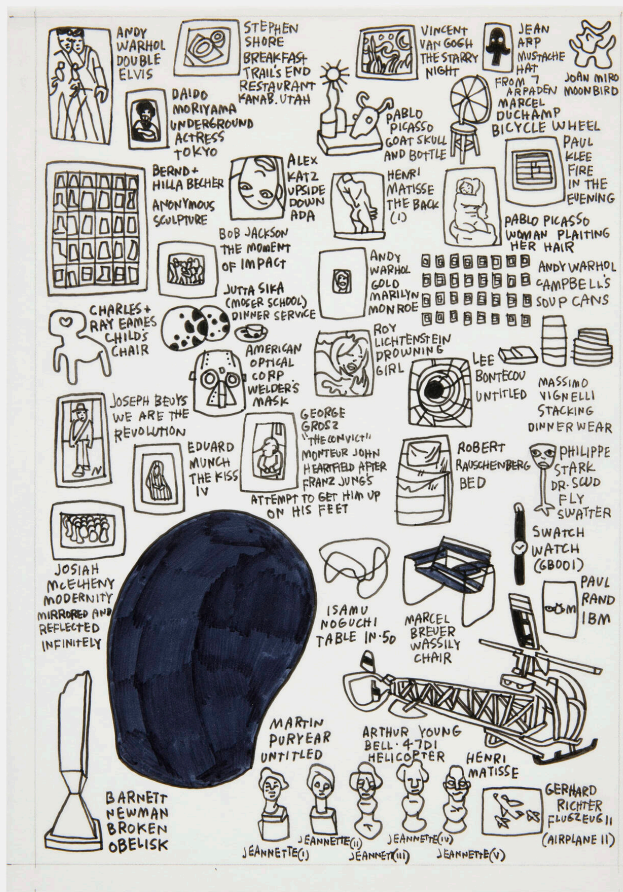 ANDY
WARHOL
DOUBLE
ELVIS
STEPHEN
SHORE
BREAKFAST
TRAIL'S END
RESTAURANT
KANAB. UTAH
VINCENT
VAN GOGH
THE STARRY
NIGHT
JEAN
ARP
MUSTACHE
HAT
FROM 7
ARPADEN
JOAN MIRO
MOONBIRD
DAIDO
MORIYAMA
UNDERGROUND
ACTRESS
TOKYO
PABLO
PICASSO
GOAT SKULL
AND BOTTLE
MARCEL
DUCHAMP
BICYCLE WHEEL
PAUL
KLEE
FIRE
IN THE
EVENING
BERND +
HILLA BECHER
ANONYMOUS
SCULPTURE
ALEX
KATZ
UPSIDE
DOWN
ADA
HENRI
MATISSE
THE BACK
(I)
PABLO PICASSO
WOMAN PLAITING
HER HAIR
BOB JACKSON
THE MOMENT
OF IMPACT
ANDY
WARHOL
GOLD
MARILYN
MONROE
ANDY WARHOL
CAMPBELL'S
SOUP CANS
CHARLES +
RAY EAMES
CHILD'S
CHAIR
JUTTA SIKA
(MOSER SCHOOL)
DINNER SERVICE
AMERICAN
OPTICAL
CORP
WELDER'S
MASK
ROY
LICHTENSTEIN
DROWNING
GIRL
LEE
BONTECOU
UNTITLED
MASSIMO
VIGNELLI
STACKING
DINNERWEAR
JOSEPH BEUYS
WE ARE THE
REVOLUTION
EDUARD
MUNCH
THE KISS
IV
GEORGE
GROSZ
"THE CONVICT"
MONTEUR JOHN
HEARTFIELD AFTER
FRANZ JUNG'S
ATTEMPT TO GET HIM UP
ON HIS FEET
ROBERT
RAUSCHENBERG
BED
PHILIPPE
STARK
DR. SCUD
FLY
SWATTER
SWATCH
WATCH
(GB001)
JOSIAH
McELHENY
MODERNITY
MIRRORED AND
REFLECTED
INFINITELY
ISAMU
NOGUCHI
TABLE IN-50
MARCEL
BREUER
WASSILY
CHAIR
PAUL
RAND
IBM
M
MARTIN
PURYEAR
UNTITLED
ARTHUR YOUNG
BELL-47D1
HELICOPTER
HENRI
MATISSE
BARNETT
NEWMAN
BROKEN
OBELISK
JEANNETTE(I)
JEANNETTE(II)
JEANNET(III)
JEANNETTE(IV)
JEANNETTE(V)
GERHARD
RICHTER
FLUGZEUG II
(AIRPLANE II)